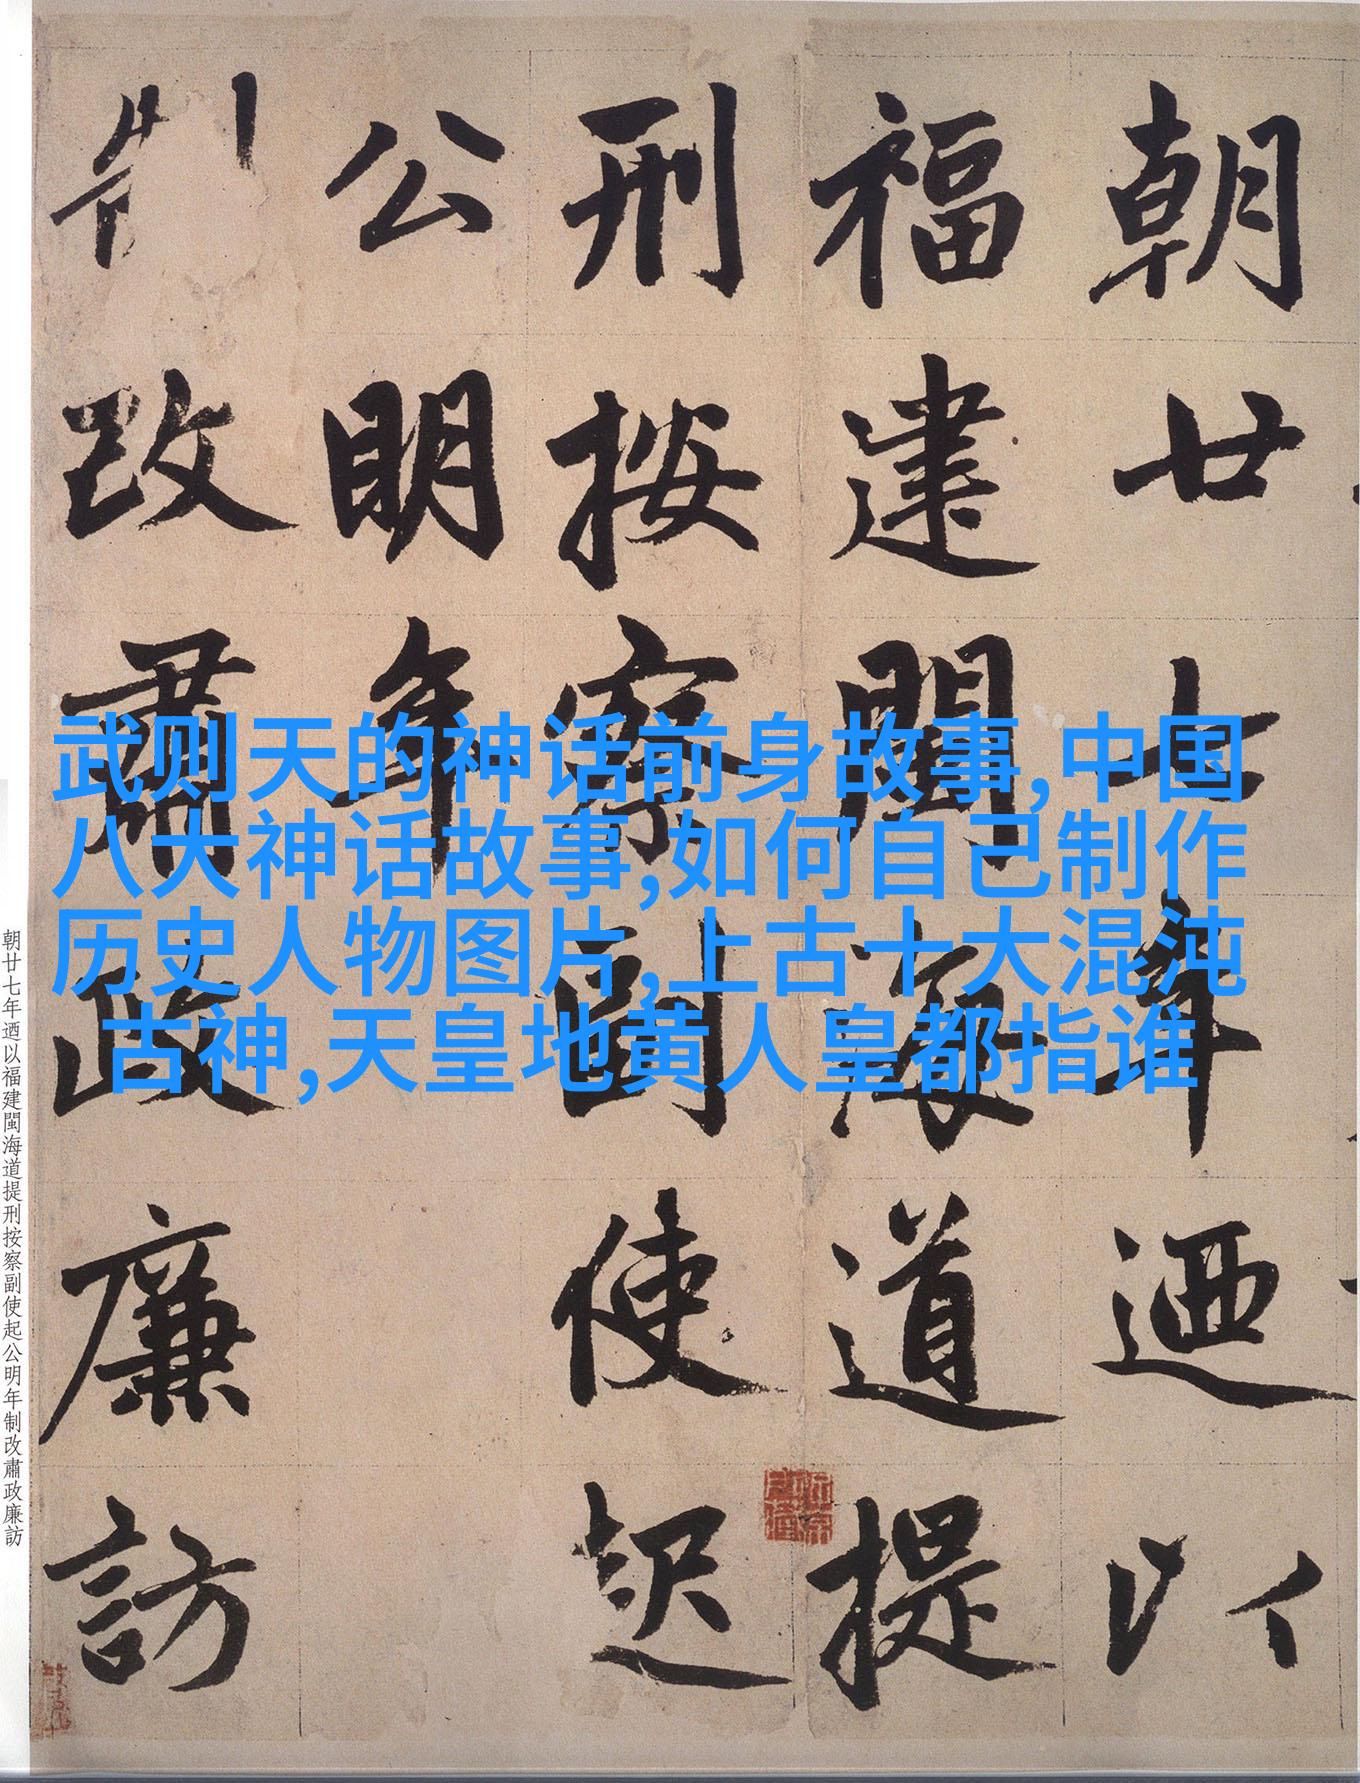 朝廿七年迺以
福建閩海道提
刑按察副使起
公明年
制改肅政廉訪
武则天的神话前身故事,中国
八大神话故事,如何自己制作
历史人物图片,上古十大混沌
古神,天皇地黄人皇都指谁
朝廿七年迺以福建閩海道提刑按察副使起公明年制改肅政廉訪